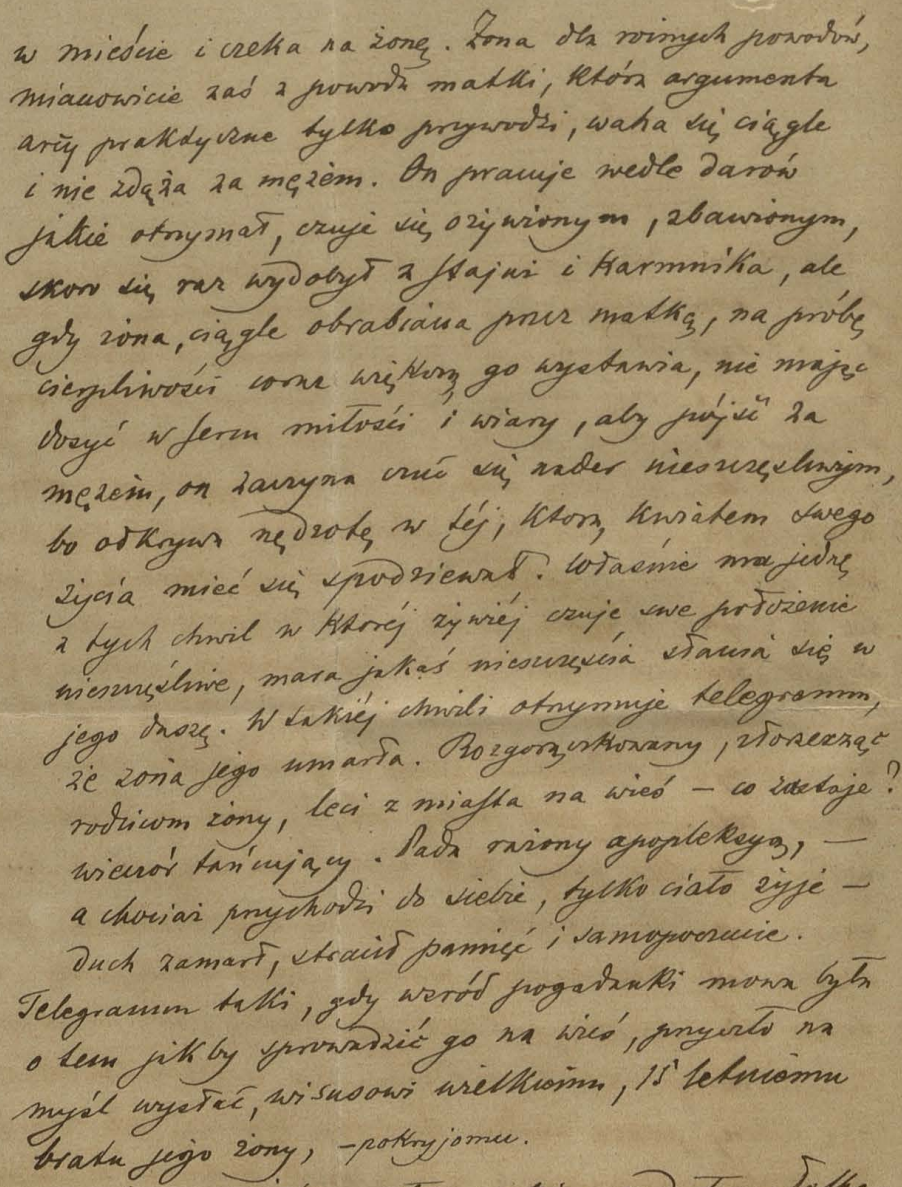 w mieście i czeka na żonę. Żona dla roimych powodów,
mianowicie zaś z powodu matki, która argumenta
arcy praktyczne tylko przywodzi, waha się ciągle
i nie zdąża za mężem. On pracuje wedle darów
jakie otrzymał, czuje się ożywionym, zbawionym,
skoro się raz wydobył z stajni i karmnika, ale
gdy żona, ciągle obrabiana przez matkę, na próbę
cierpliwości coraz większą go wystawia, nie mając
dosyć w sercu miłości i wiary, aby pójść za
mężem, on zaczyna czuć się nader nieszczęśliwym,
bo odkrywa nędzotę w téj, którą kwiatem swego
życia mieć się spodziewał. Właśnie ma jednę
z tych chwil w któréj żywiéj czuje swe położenie
nieszczęśliwe, mara jakaś nieszczęścia stawia się w
jego duszę. W takiéj chwili otrzymuje telegramm,
że żona jego umarła. Rozgorączkowany, złorzecząc
rodzicom żony, leci z miasta na wieś – co zastaje?
wieczór tańcujący. Pada rażony apopleksyą, –
a chociaż przychodzi do siebie, tylko ciało żyje –
duch zamarł, stracił pamięć i samopoczucie.
Telegramm taki, gdy wzród pogadanki mowa była
o tem jakby sprowadzić go na wieś, przyszło na
myśl wysłać, wisusowi wielkiemu, 15 letniemu
bratu jego żony, – pokryjomu.